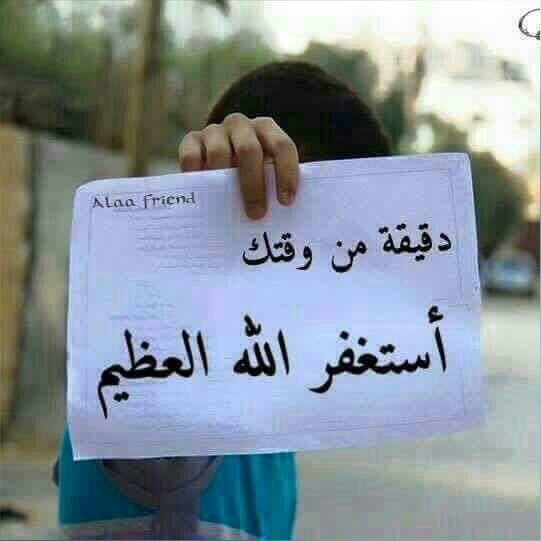 Alaa friend
دقيقة من وقتك
أستغفر الله العظيم